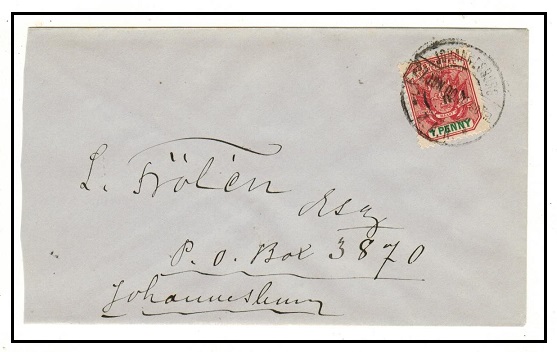 JOHANNESBURG
1 PENNY
L. Frölén
Esq
P. O. Box 3870
Johannesburg